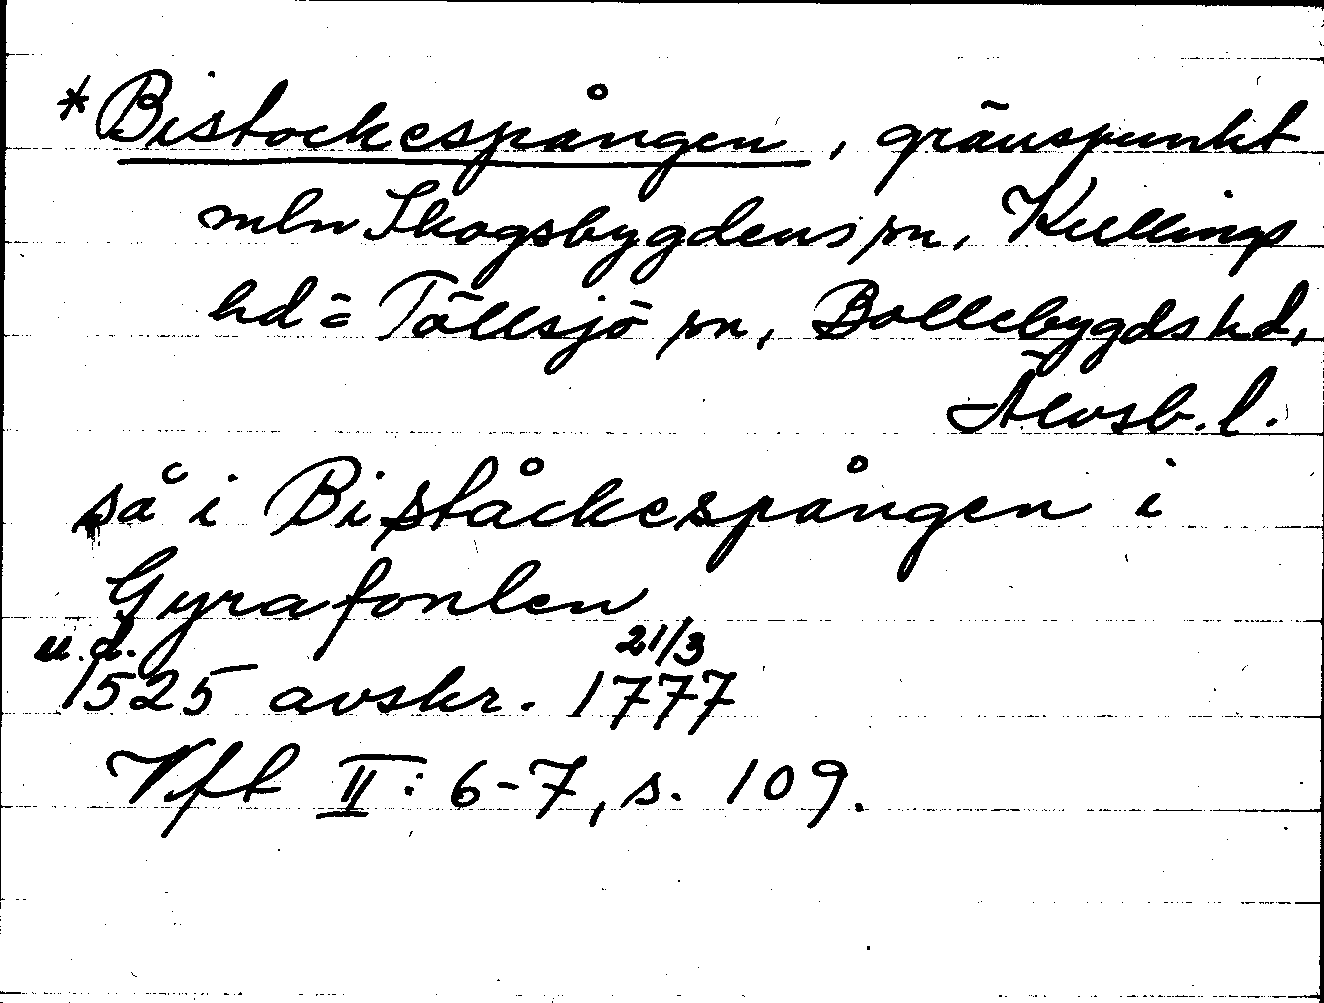 *Bistockespången, gränspunkt
mln Skogsbygdens sn, Kullings
hd = Töllsjö sn, Bollebygds hd,
Älvsb. l.
så i Biståckespången i
Gyrafonlen
u.d. 21/3
1525 avskr. 1777
Vft II: 6-7, s. 109.